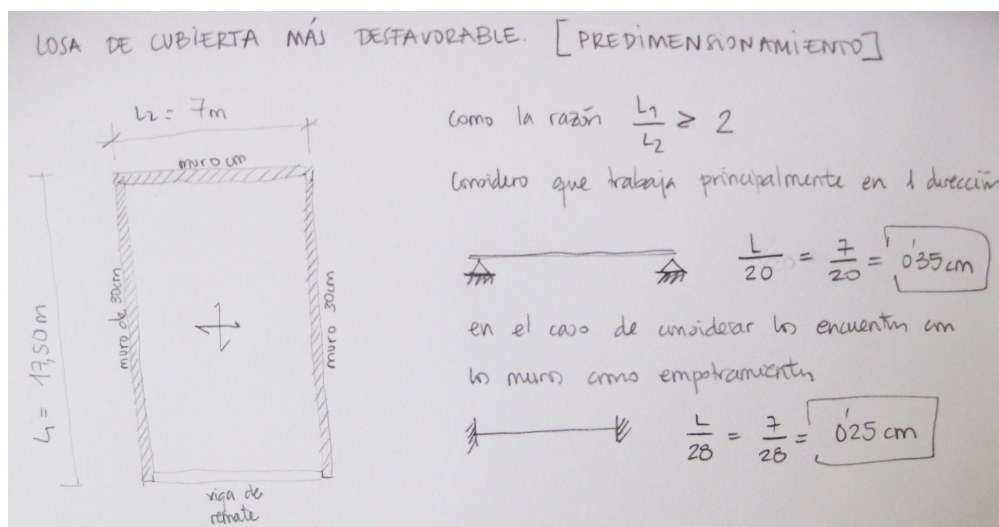 LOSA DE CUBIERTA MÁS DESFAVORABLE. [PREDIMENSIONAMIENTO]
L2 = 7m
muro cm
muro de 30cm
muro 30cm
L1 = 17,50m
viga de
remate
como la razón L1/L2 ≥ 2
Considero que trabaja principalmente en 1 dirección
L/20 = 7/20 = 0'35 cm
en el caso de considerar los encuentros con
los muros como empotramientos
L/28 = 7/28 = 0'25 cm